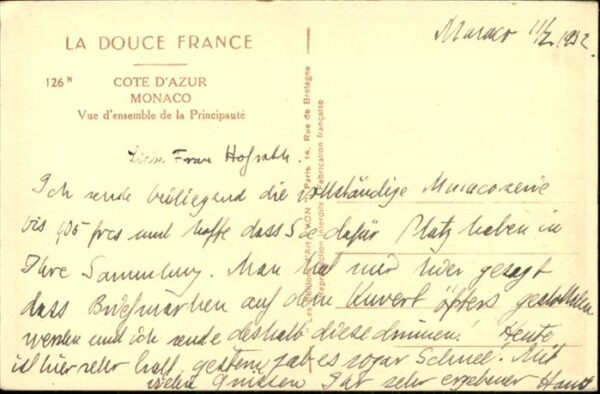 LA DOUCE FRANCE
126 N
COTE D'AZUR
MONACO
Vue d'ensemble de la Principauté
Monaco 11/2. 1952.
Liebe Frau Hofrath.
Ich sende beiliegend die vollständige Monacoserie
bis frcs und hoffe dass Sie dafür Platz haben in
Ihre Sammlung. Man hat mir hier gesagt
dass Briefmarken auf dem Kuvert öfters gestohlen
werden und ich sende deshalb diese drinnen. Heute
ist hier sehr kalt, gestern gab es sogar Schnee. Mit
vielen Grüssen Ihr sehr ergebener Hans
Les Editions d'Art Paris, 14, Rue de Bretagne
Reproduction Interdite Fabrication française